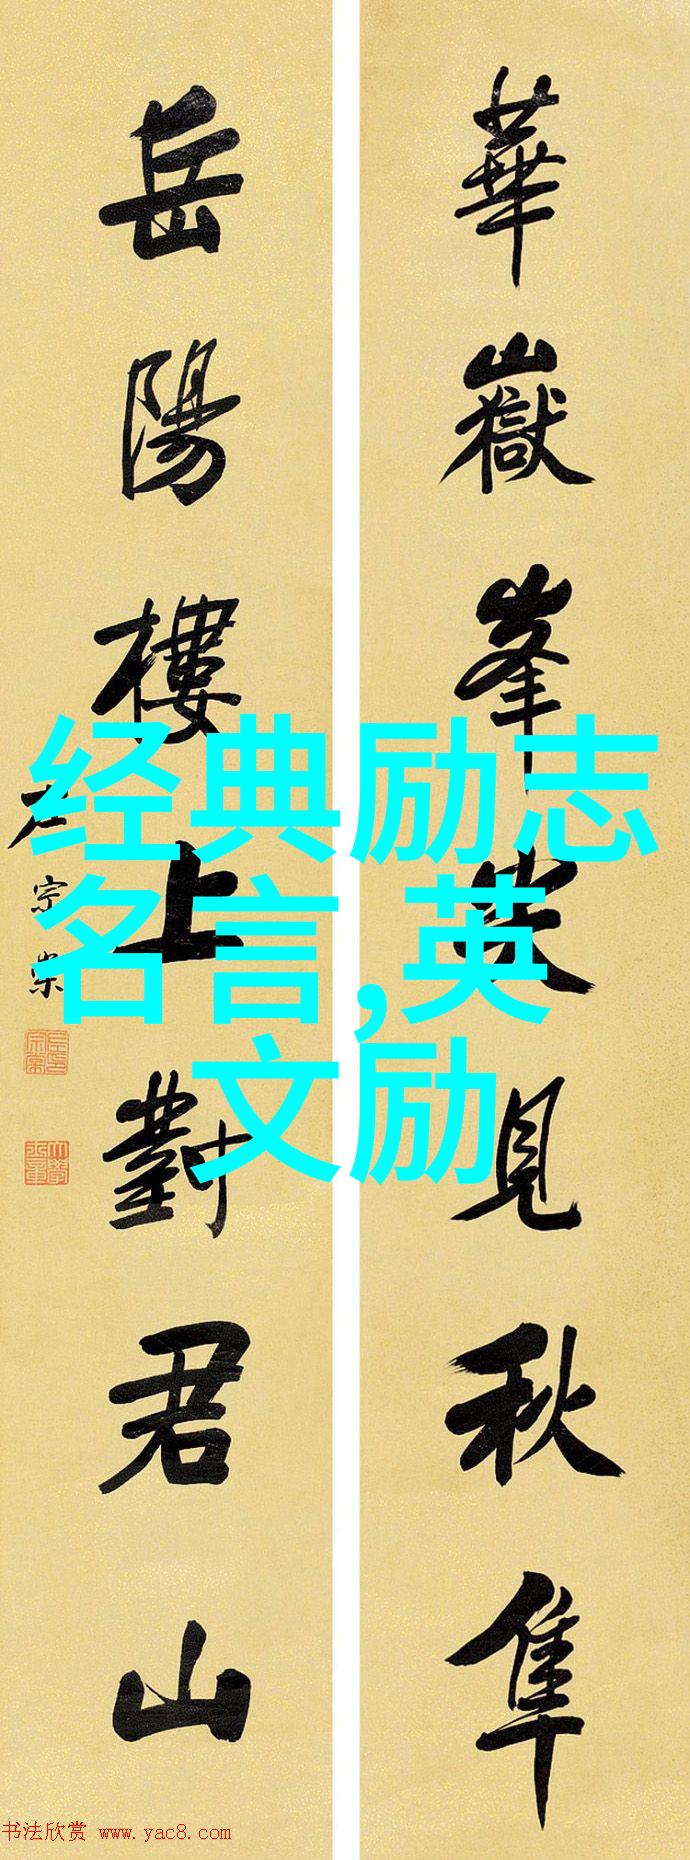 華嶽峯尖見秋隼
岳陽樓上對君山
左宗棠
经典励志
名言,英
文励
书法欣赏 www.yac8.com